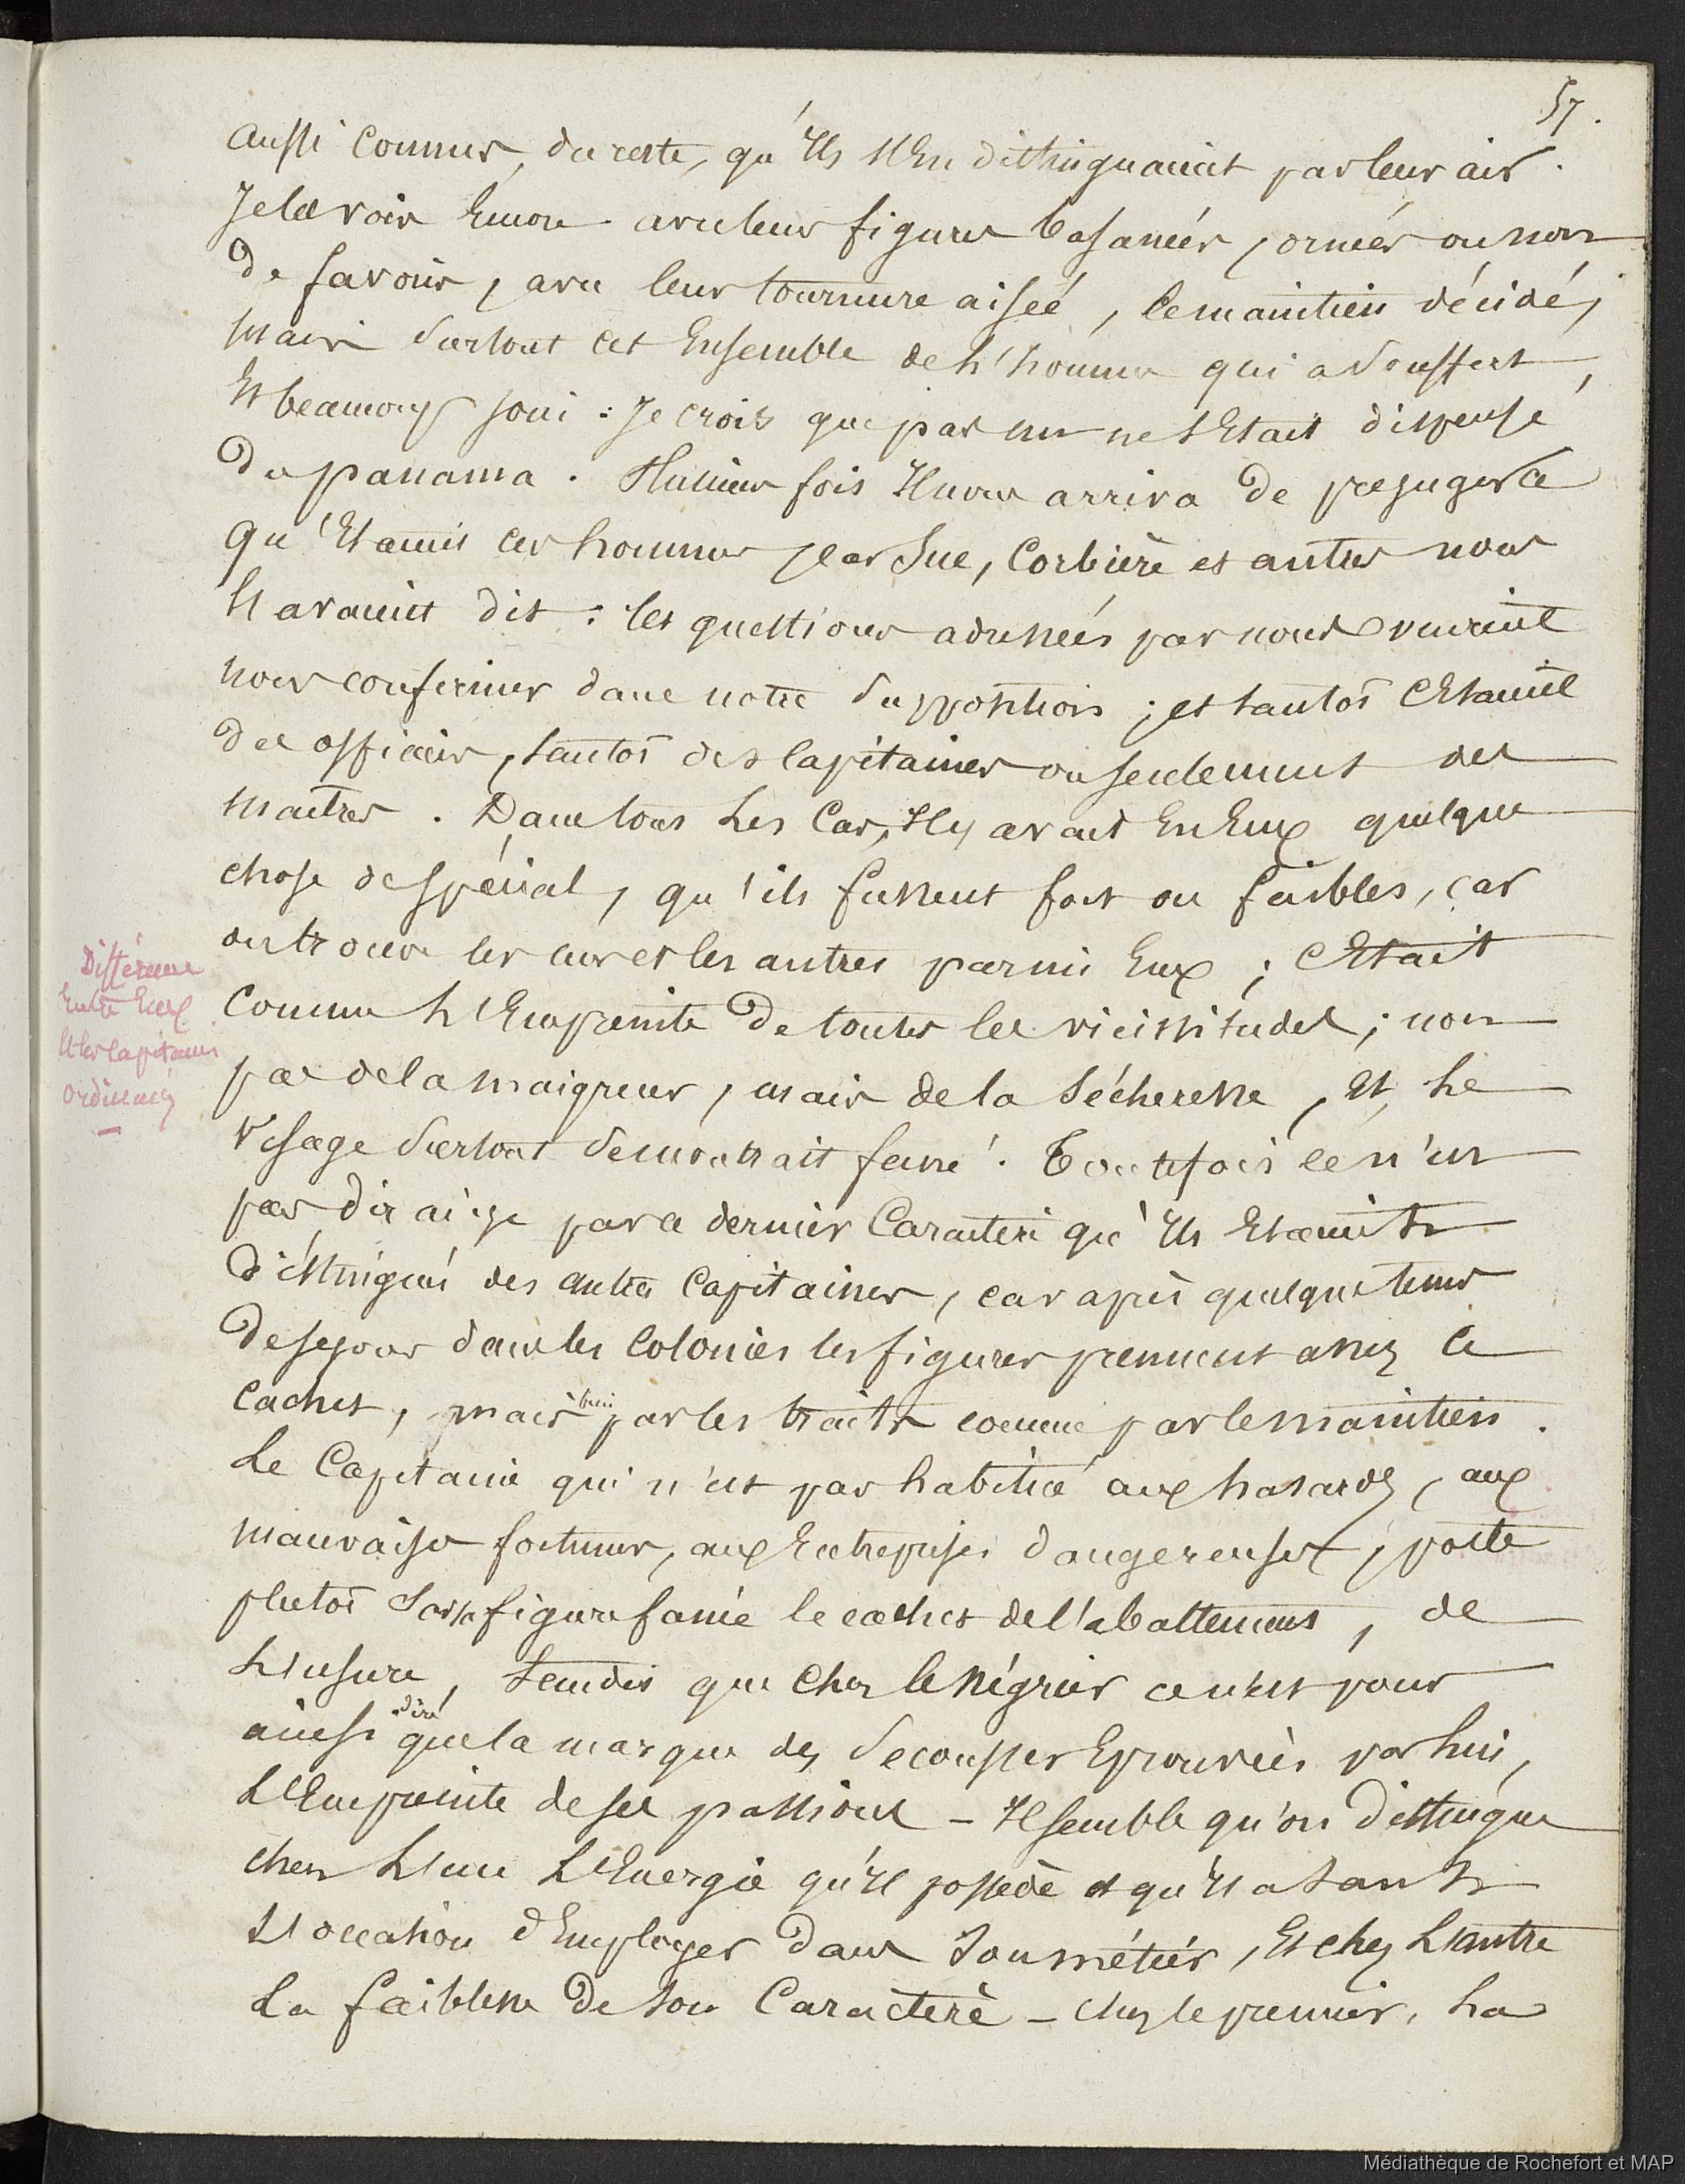 57.
aussi connus, du reste, qu'ils s'en distinguaient par leur air.
Je les vois encore avec leurs figures basanées, ornées ou non
de favoris, avec leur tournure aisée, le maintien décidé,
mais surtout cet ensemble de l'homme qui a souffert,
et beaucoup joui : Je crois que pas un ne s'était dispensé
du panama. Plusieurs fois il nous arriva de préjuger ce
qu'étaient ces hommes, Sue, Corbière et autres nous
l'avaient dit : les questions adressées par nous venaient
nous confirmer dans notre supposition ; et tantôt c'étaient
des officiers, tantôt des capitaines ou seulement des
maîtres. Dans tous les cas, il y avait en eux quelque
chose de spécial, qu'ils fussent fort ou faibles, car
on trouve les uns et les autres parmi eux ; c'était
comme l'empreinte de toutes les vicissitudes ; non
pas de la maigreur, mais de la sécheresse, et le
visage surtout se montrait fané. Toutefois ce n'est
pas dirai-je par ce dernier caractère qu'ils étaient
distingués des autres capitaines, car après quelque tems
de sejour dans les colonies les figures prennent assez ce
cachet, mais bien par les traits comme par le maintien.
Le Capitaine qui n'est pas habitué aux hasards, aux
mauvaises fortunes, aux entreprises dangereuses, porte
plutôt sur sa figure fanée le cachet de l'abattement, de
l'usure, tandis que chez le négrier ce n'est pour
ainsi dire que la marque des secousses éprouvées par lui,
l'empreinte de ses passions - Il semble qu'on distingue
chez l'un l'énergie qu'il possède et qu'il a tant
l'occasion d'employer dans son métier, et chez l'autre
la faiblesse de son caractère - chez le premier, la
Différence
entre eux
et les capitaines
ordinaires
Médiathèque de Rochefort et MAP